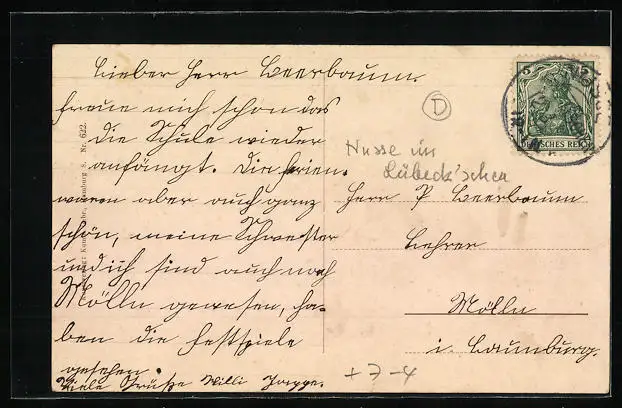 Lieber Herr Beerbaum.
freue mich schon das
die Schule wieder
anfängt. Die Ferien
waren aber auch ganz
schön, meine Schwester
und ich sind auch nach
Mölln gewesen, ha-
ben die Festspiele
gesehen.
Viele Grüße Willi
D
Nusse im
Lübeck'schen
Herr P Beerbaum
Lehrer
Mölln
i. Lauenburg.
+ 7-4
5
DEUTSCHES REICH
Nr. 622.